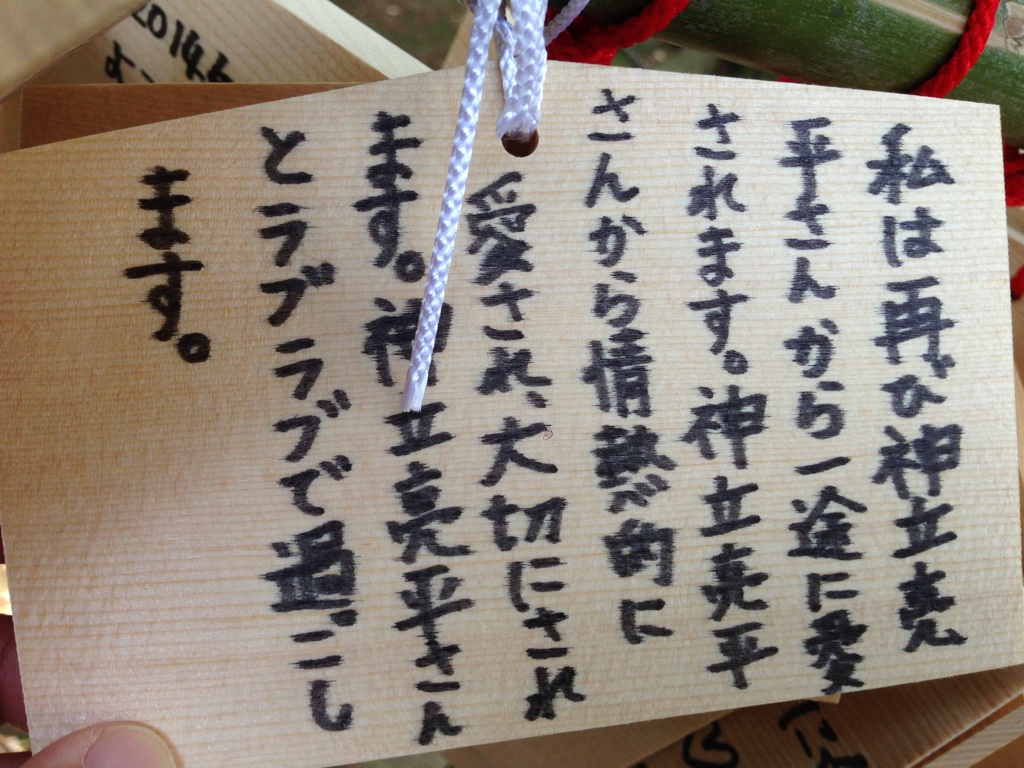 私は再び神立亮
平さんから一途に愛
されます。神立亮平
さんから情熱的に
愛され、大切にされ
ます。神立亮平さん
とラブラブで過ごし
ます。
2014.